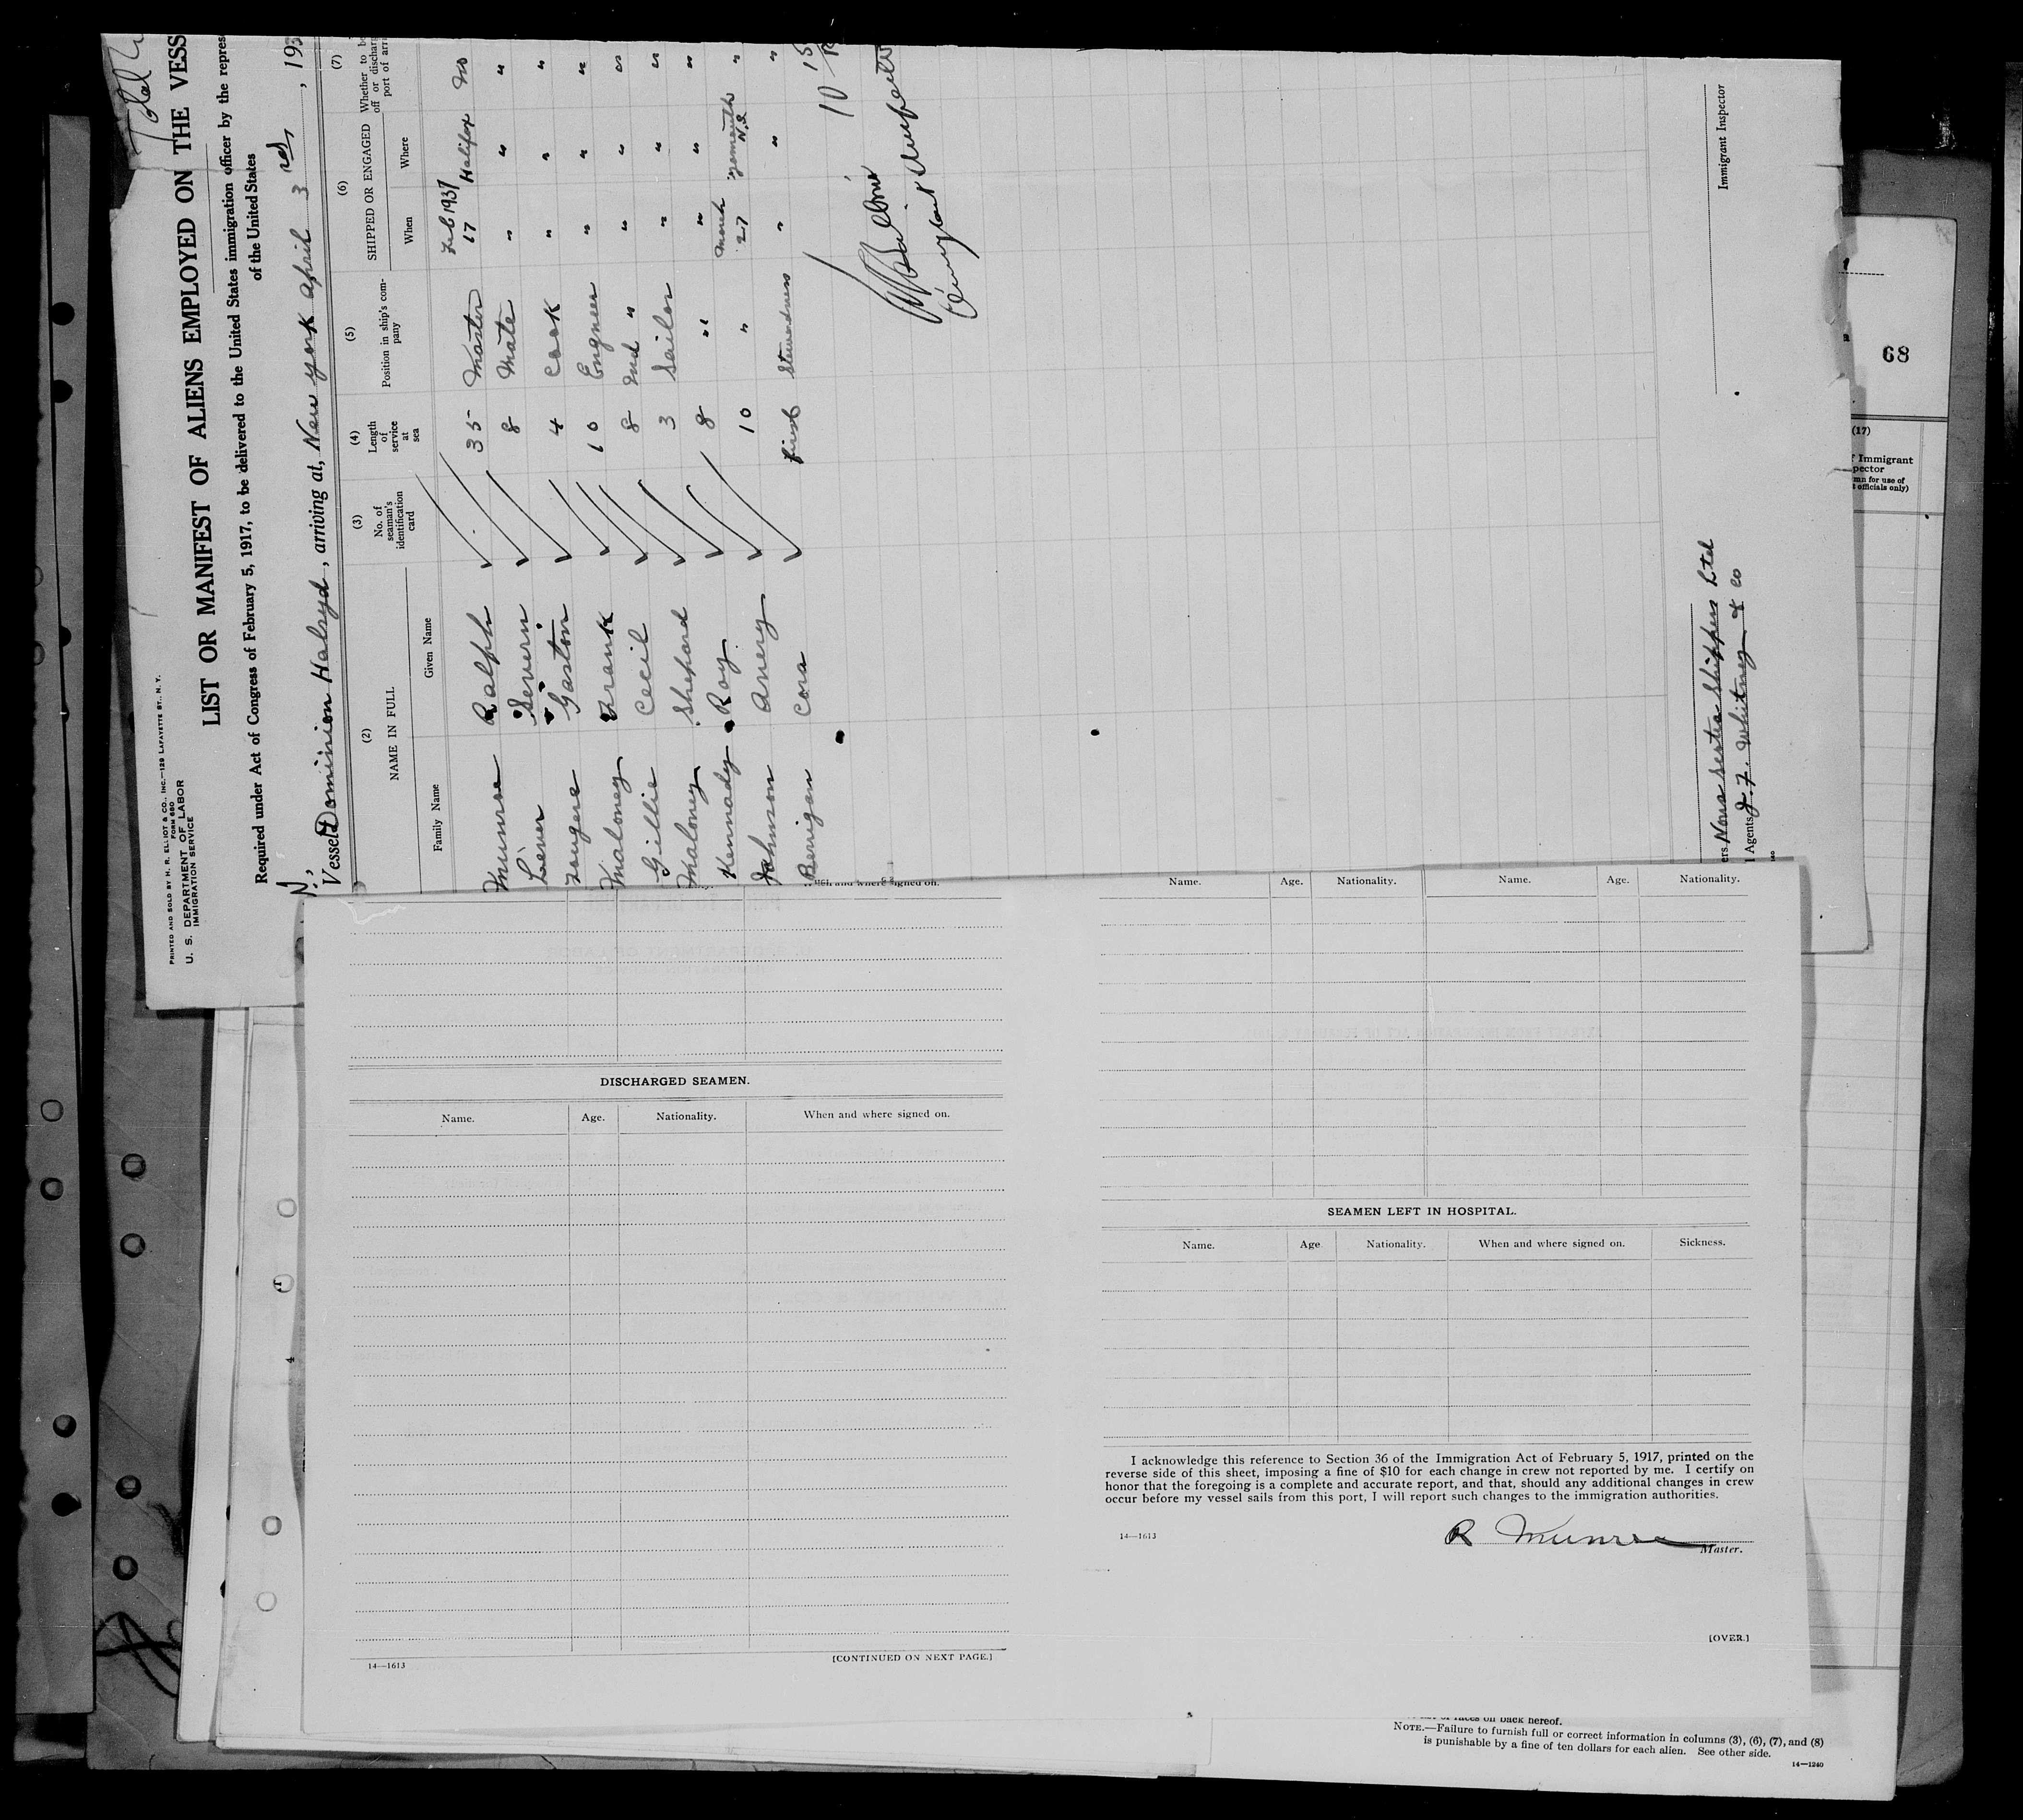 PRINTED AND SOLD BY H. R. ELLIOT & CO., INC.—129 LAFAYETTE ST., N. Y.
FORM 680
U. S. DEPARTMENT OF LABOR
IMMIGRATION SERVICE
LIST OR MANIFEST OF ALIENS EMPLOYED ON THE VESS
Required under Act of Congress of February 5, 1917, to be delivered to the United States immigration officer by the repres
of the United States
Vessel Dominion Halsyd, arriving at, New York April 3rd, 193
(2) NAME IN FULL
Family Name
Given Name
(3) No. of seaman's identification card
(4) Length of service at sea
(5) Position in ship's company
(6) SHIPPED OR ENGAGED
When
Where
(7) Whether to be
off or discharg
port of arri
Munroe Ralph 35 Master Feb 1937 17 Halifax No
Severin 8 Mate " " "
Gaston 4 Cook " " "
Maloney Frank 10 Engineer " " "
Gillie Cecil 8 2nd " " " "
Maloney Shepard 3 Sailor " " "
Kennady Roy 8 " " " "
Johnson Avery 10 " March 27 Yarmouth N.S. "
Berrigan Cora First Stewardness " " "
Immigrant Inspector
ers Nova Scotia Shippers Ltd
l Agents J. F. Whitney & Co
68
(17)
f Immigrant
pector
mn for use of
t officials only)
When and where signed on.
DISCHARGED SEAMEN.
Name. Age. Nationality. When and where signed on.
14—1613
[CONTINUED ON NEXT PAGE.]
Name. Age. Nationality. Name. Age. Nationality.
SEAMEN LEFT IN HOSPITAL.
Name. Age Nationality. When and where signed on. Sickness.
I acknowledge this reference to Section 36 of the Immigration Act of February 5, 1917, printed on the
reverse side of this sheet, imposing a fine of $10 for each change in crew not reported by me. I certify on
honor that the foregoing is a complete and accurate report, and that, should any additional changes in crew
occur before my vessel sails from this port, I will report such changes to the immigration authorities.
14—1613
R Munroe
Master.
[OVER.]
of races on back hereof.
NOTE.—Failure to furnish full or correct information in columns (3), (6), (7), and (8)
is punishable by a fine of ten dollars for each alien. See other side.
14—1240